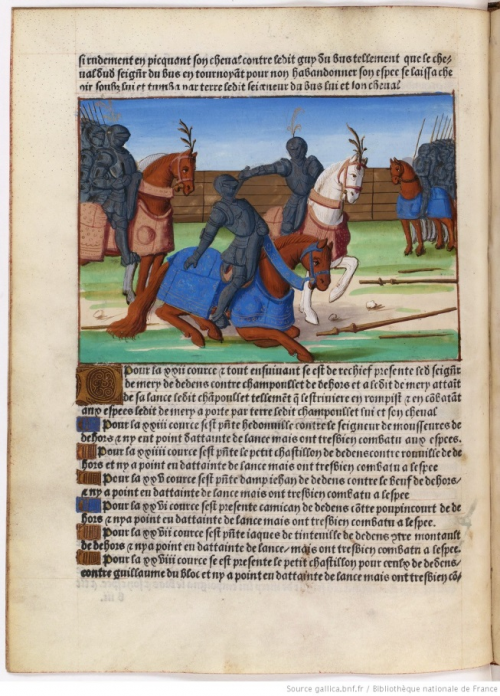 si rudement en picquant son cheval contre ledit guy du bus tellement que le che-
val dud seigñr du bus en tournoyāt pour non habandonner son espee se laissa che
oir soubz lui et tumba par terre ledit seigneur du bus lui et son cheval
Pour la xxii cource & tout ensuivant se est de rechief presente led seigñr
de mery de dedens contre champoullet de dehors et a ledit de mery attait
de sa lance ledit chāpoullet tellemēt q̃ lestriviere en rompist & en cōbatāt
aux espees ledit de mery a porte par terre ledit champoullet lui et son cheval
Pour la xxiii cource sest p̄nte hedonville contre le seigneur de mousseures de
dehors & ny eut point dattainte de lance mais ont tresbien combatu aux espees.
Pour la xxiiii cource sest p̄nte le petit chastillon de dedens contre ronville de de
hors et ny a point eu dattainte de lance mais ont tresbien combatu a lespee
Pour la xxv cource sest p̄nte dampiehan de dedens contre le beuf de dehors
& ny a point eu dattainte de lance mais ont tresbien combatu a lespee
Pour la xxvi cource sest presente camican de dedens cōtre poupincourt de de
hors & ny a point eu dattainte de lance mais ont tresbien combatu a lespee.
Pour la xxvii cource sest p̄nte iaques de tinteville de dedens 9tre montault
de dehors & ny a point eu dattainte de lance mais ont tresbien combatu a lespee.
Pour la xxviii cource se est presente le petit chastillon pour cenly de dedens
contre guillaume du bloc et ny a point eu dattainte de lance mais ont tresbien cō
Source gallica.bnf.fr / Bibliothèque nationale de France